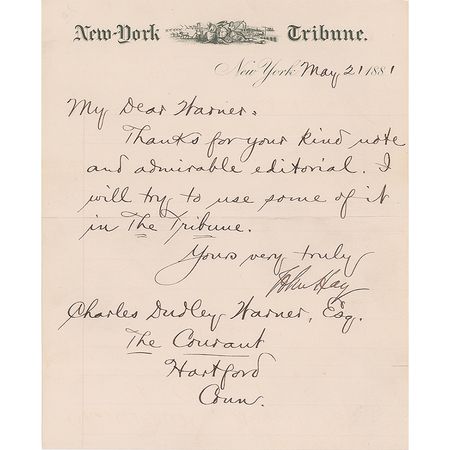 New-York Tribune.
New York May 21 1881
My Dear Warner.
Thanks for your kind note
and admirable editorial. I
will try to use some of it
in The Tribune.
Yours very truly
John Hay
Charles Dudley Warner, Esq.
The Courant
Hartford
Conn.